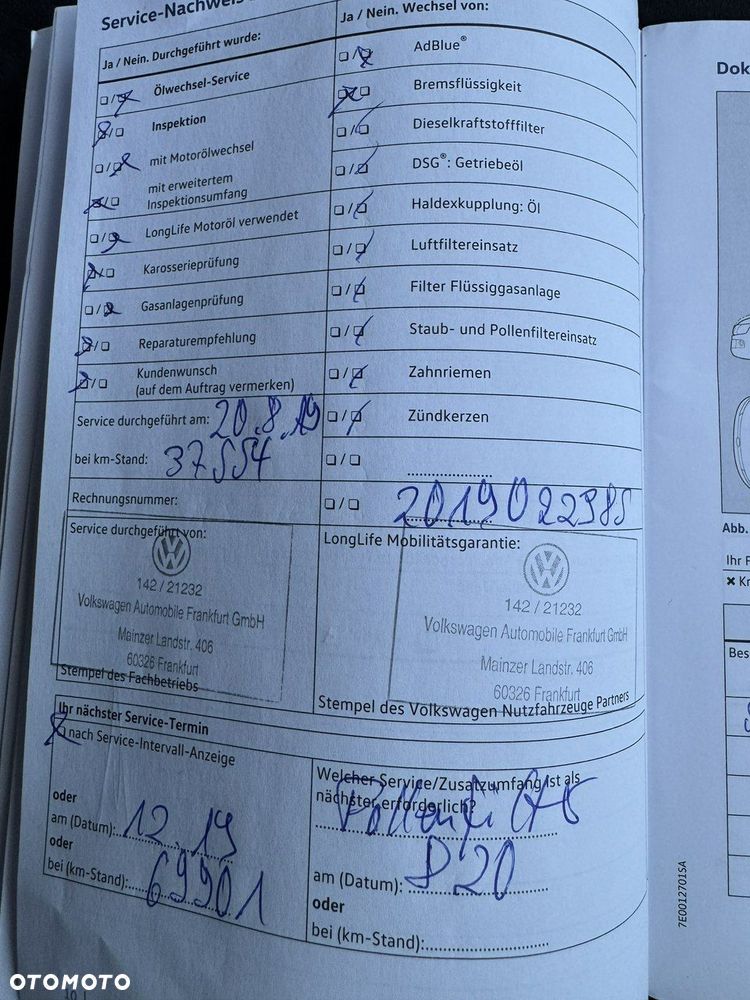 Service-Nachweis
Ja / Nein. Durchgeführt wurde:
Ölwechsel-Service
Inspektion
mit Motorölwechsel
mit erweitertem
Inspektionsumfang
LongLife Motoröl verwendet
Karosserieprüfung
Gasanlagenprüfung
Reparaturempfehlung
Kundenwunsch
(auf dem Auftrag vermerken)
Service durchgeführt am: 20.8.19
bei km-Stand: 37554
Rechnungsnummer:
Ja / Nein. Wechsel von:
AdBlue®
Bremsflüssigkeit
Dieselkraftstofffilter
DSG®: Getriebeöl
Haldexkupplung: Öl
Luftfiltereinsatz
Filter Flüssiggasanlage
Staub- und Pollenfiltereinsatz
Zahnriemen
Zündkerzen
2019022985
Service durchgeführt von:
142 / 21232
Volkswagen Automobile Frankfurt GmbH
Mainzer Landstr. 406
60326 Frankfurt
Stempel des Fachbetriebs
LongLife Mobilitätsgarantie:
142 / 21232
Volkswagen Automobile Frankfurt GmbH
Mainzer Landstr. 406
60326 Frankfurt
Stempel des Volkswagen Nutzfahrzeuge Partners
Ihr nächster Service-Termin
nach Service-Intervall-Anzeige
oder
am (Datum): 12.19
oder
bei (km-Stand): 69901
Welcher Service/Zusatzumfang ist als
nächster erforderlich?
am (Datum): 8 20
oder
bei (km-Stand):
Dok
Abb.
Ihr F
Kr
Bes
7E0012701SA
OTOMOTO